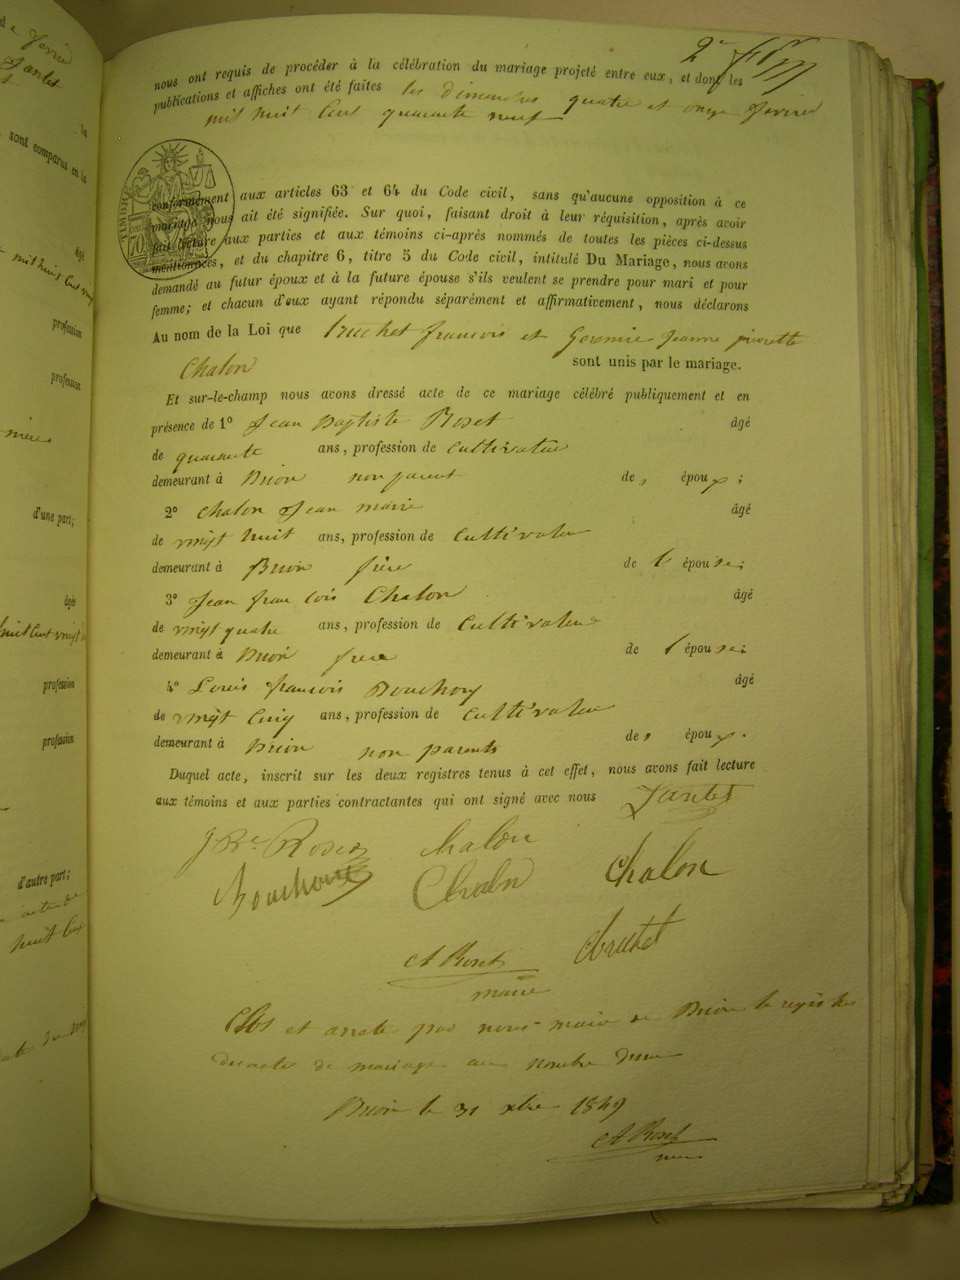 2e
nous ont requis de procéder à la célébration du mariage projeté entre eux, et dont les
publications et affiches ont été faites les dimanches quatre et onze février
mil huit cent quarante neuf
TIMBRE
70
conformément aux articles 63 et 64 du Code civil, sans qu'aucune opposition à ce
mariage nous ait été signifiée. Sur quoi, faisant droit à leur réquisition, après avoir
fait lecture aux parties et aux témoins ci-après nommés de toutes les pièces ci-dessus
mentionnées, et du chapitre 6, titre 5 du Code civil, intitulé Du Mariage, nous avons
demandé au futur époux et à la future épouse s'ils veulent se prendre pour mari et pour
femme; et chacun d'eux ayant répondu séparément et affirmativement, nous déclarons
Au nom de la Loi que françois et Jeanne pierrette
Chalon sont unis par le mariage.
Et sur-le-champ nous avons dressé acte de ce mariage célébré publiquement et en
présence de 1o Jean Baptiste Roset âgé
de quarante ans, profession de Cultivateur
demeurant à Brion non parent de, époux;
2o Chalon Jean marie âgé
de vingt huit ans, profession de Cultivateur
demeurant à Brion frère de l épouse;
3o Jean francois Chalon âgé
de vingt quatre ans, profession de Cultivateur
demeurant à Brion frere de l épouse;
4o Louis francois Bouchoux âgé
de vingt Cinq ans, profession de Cultivateur
demeurant à Brion non parents de, époux.
Duquel acte, inscrit sur les deux registres tenus à cet effet, nous avons fait lecture
aux témoins et aux parties contractantes qui ont signé avec nous Jantet
J Bte Roset Chalon
Bouchoux Chalon Chalon
A Roset
maire
Clos et arreté par nous maire de Brion le registre
des actes de mariage au nombre d'un
Brion le 31 xbre 1849
A Roset
maire
sont comparus en la
âgé
mil huit cent vingt
profession
profession
mère
d'une part;
âgés
huit cent vingt
profession
profession
d'autre part;
acte de
huit cent